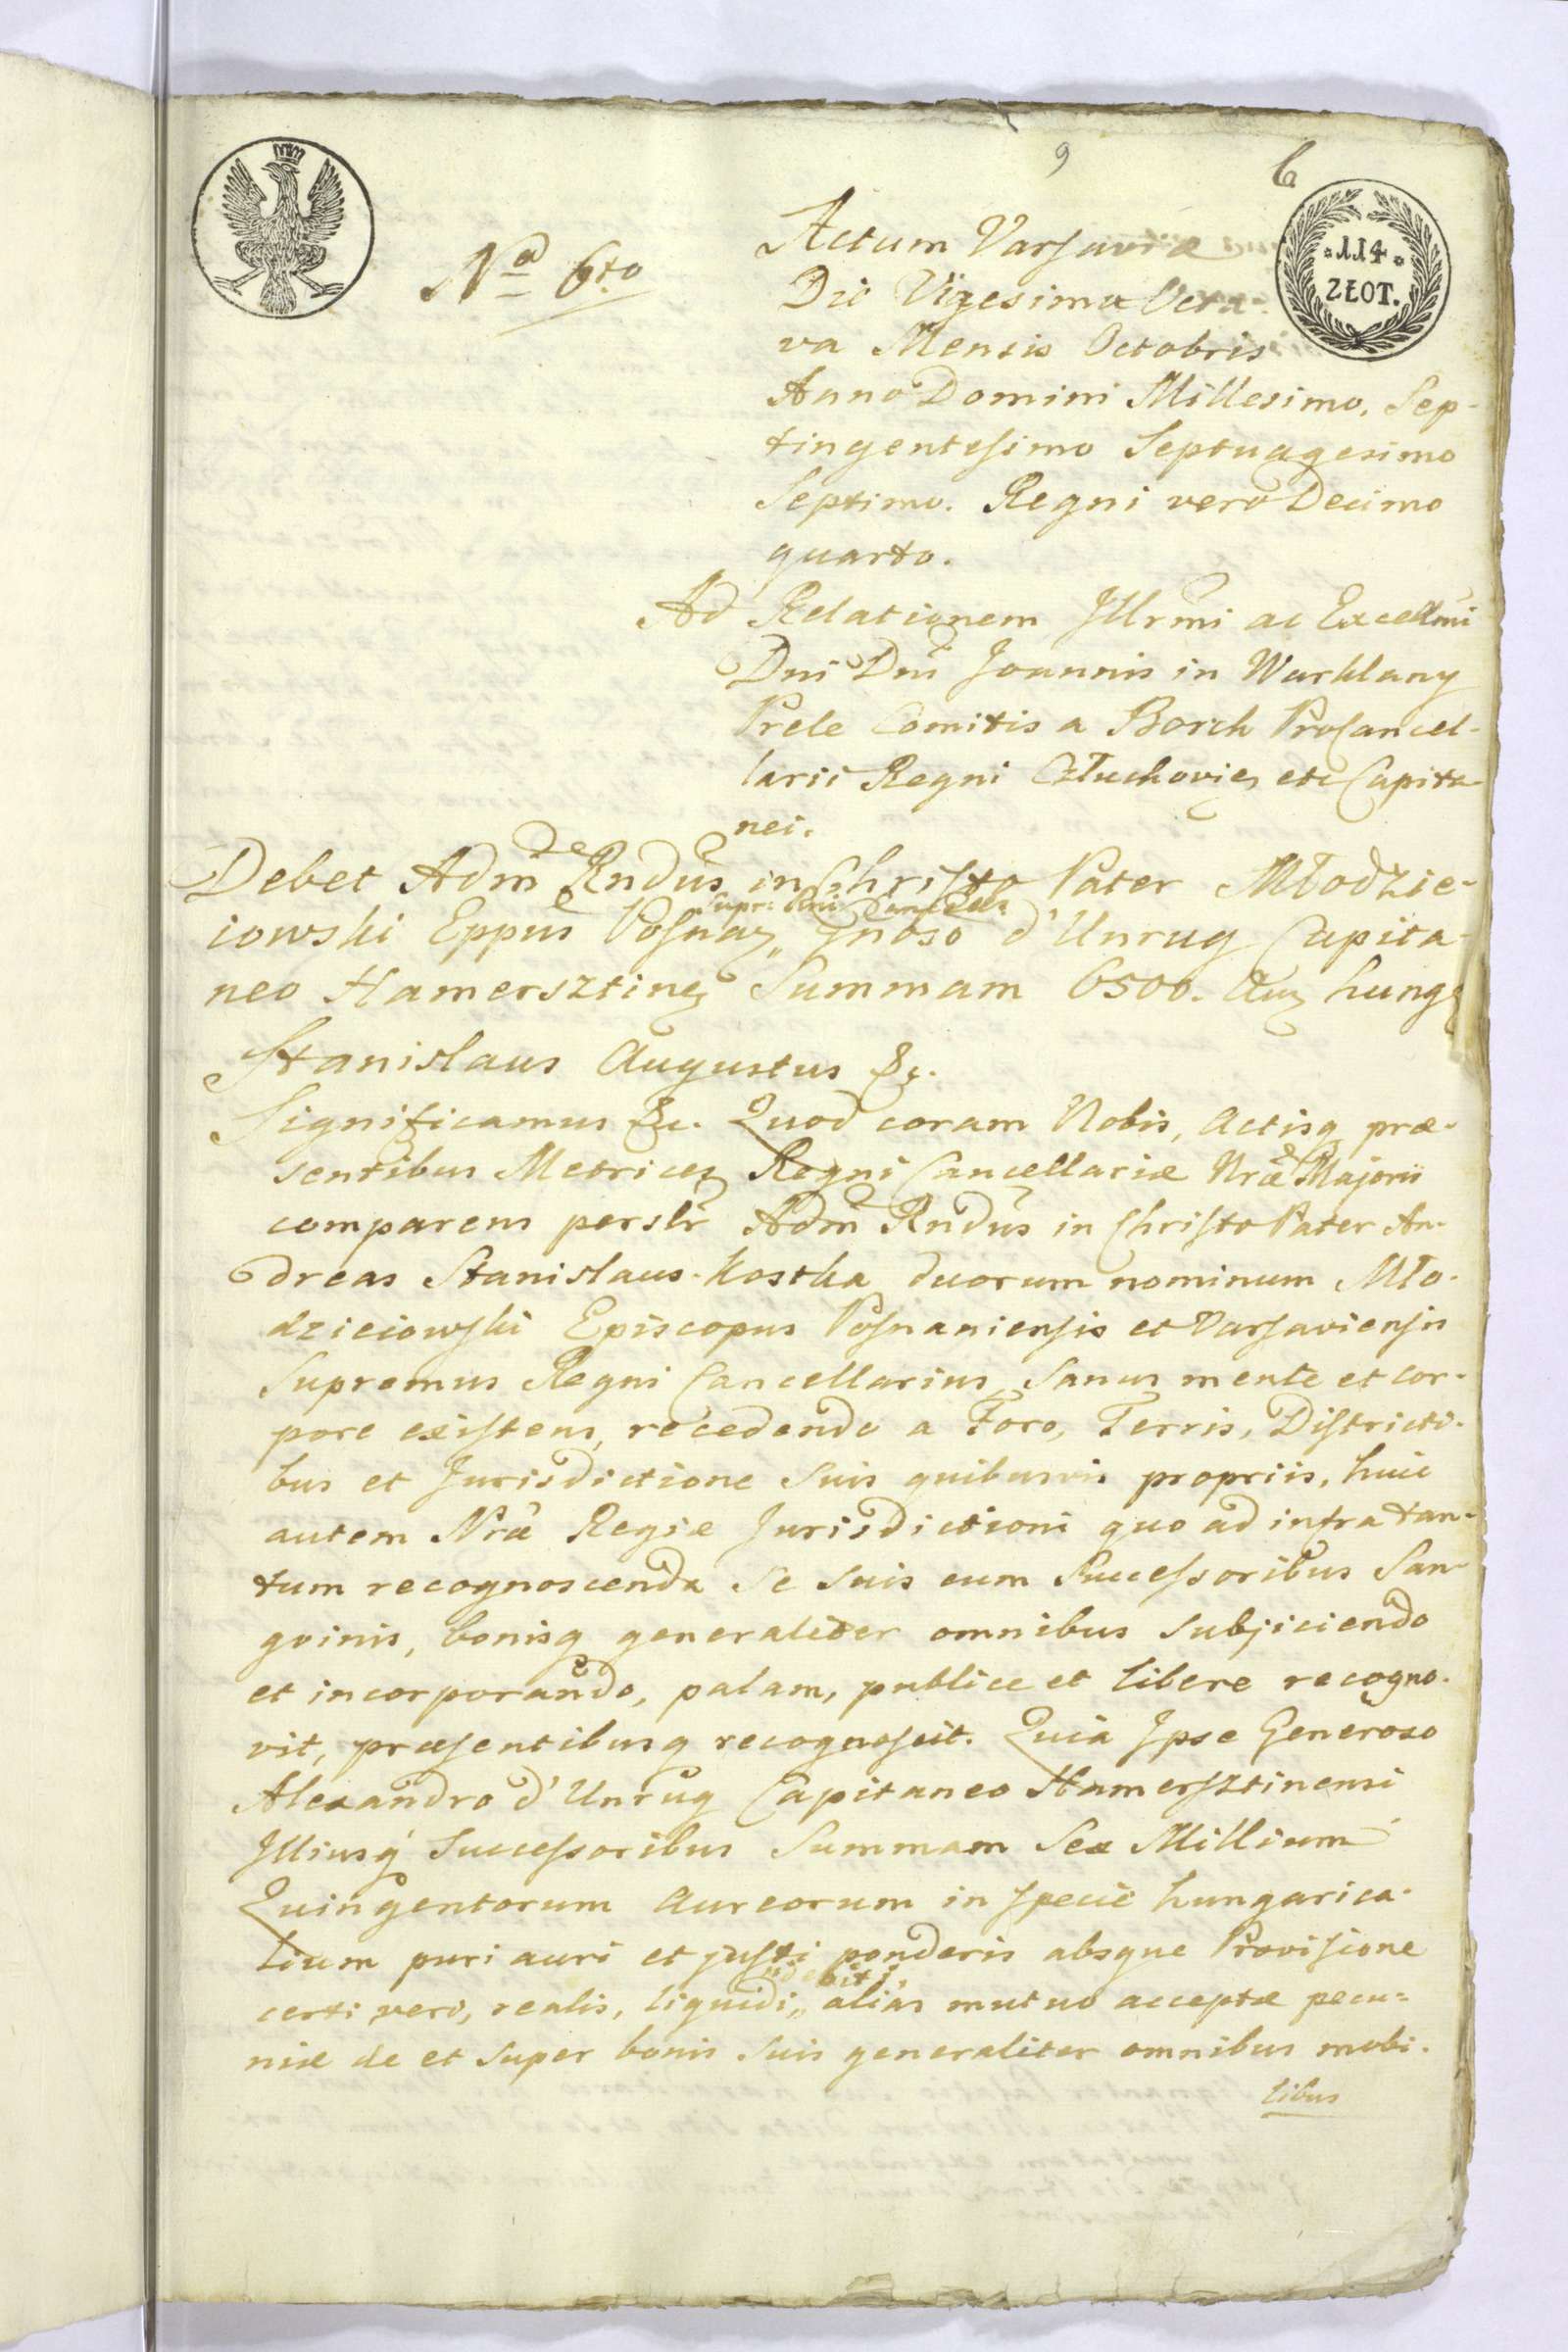 9
6
114
ZŁOT.
Nᵒ 6to
Actum Varsaviæ
Die Vigesima Octa-
va Mensis Octobris
Anno Domini Millesimo, Sep-
tingentesimo Septuagesimo
Septimo. Regni vero Decimo
quarto.
Ad Relationem Jllrmi ac Excellmi
Dni Dni Joannis in Warklany
Prele Comitis a Borch ProCancel-
larii Regni Człuchovien etc Capita-
nei.
Debet Adm Rndus in Christo Pater Młodzie-
iowski Eppus Posnan „Supr: Rni Cancellr Gnoso d'Unrug Capita-
neo Hamersztinen Summam 6500. Aur hung
Stanislaus Augustus &c.
Significamus &c. Quod coram Nobis, Actisq præ-
sentibus Metrices Regni Cancellariæ Nræ Majoris
comparens persltr Adm Rndus in Christo Pater An-
dreas Stanislaus-Kostka duorum nominum Mło-
dzieiowski Episcopus Posnaniensis et Varsaviensis
Supremus Regni Cancellarius, Sanus mente et cor-
pore existens, recedendo a Foro, Terris, Districti-
bus et Jurisdictione Suis quibusvis propriis, huic
autem Nrâ Regiæ Jurisdictioni quo ad infra tan-
tum recognoscenda Se Suis cum Successoribus San-
gvinis, bonisq generaliter omnibus Subjiciendo
et incorporando, palam, publice et libere recogno-
vit, præsentibusq recognoscit. Quia Jpse Generoso
Alexandro d'Unrug Capitaneo Hamersztinensi
Jlliusq Successoribus Summam Sex Millium
Quingentorum Aureorum in Specie hungarica-
lium puri auri et justi ponderis absque Provisione
certi, veri, realis, liquidi, „debiti, aliás mutuo acceptæ pecu-
niæ de et Super bonis Suis generaliter omnibus mobi-
libus